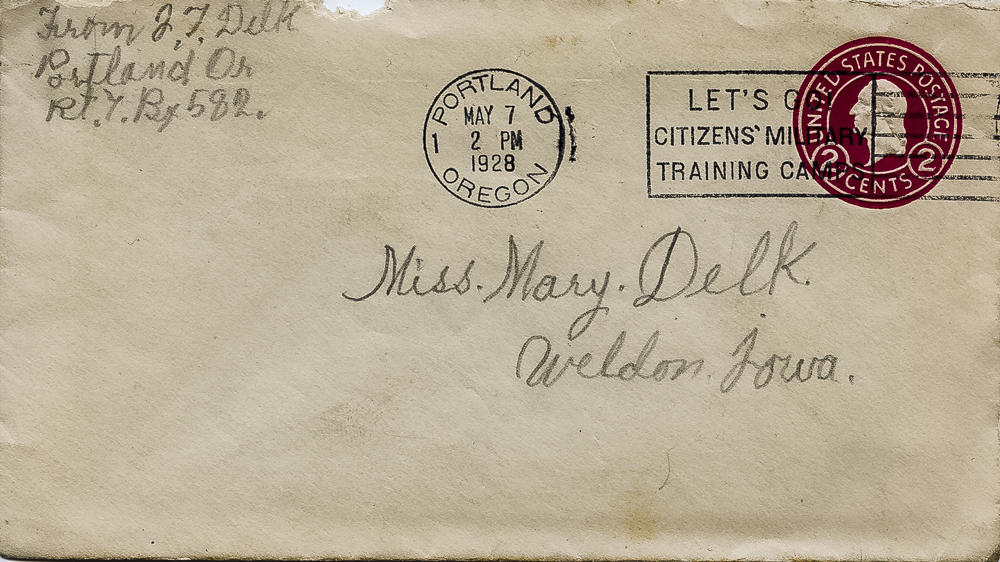 From J. T. Delk
Portland Or
Rt. 7. Bx 582.
PORTLAND
MAY 7
1 2 PM
1928
OREGON
LET'S GO!
CITIZENS' MILITARY
TRAINING CAMPS
UNITED STATES POSTAGE
2 CENTS 2
Miss. Mary. Delk.
Weldon. Iowa.